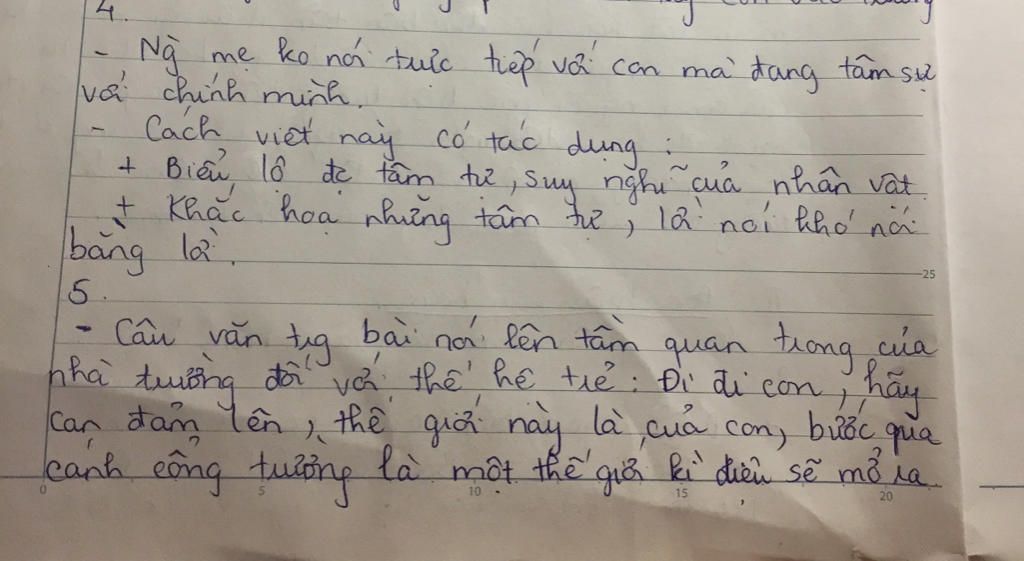 4.
- Ng mẹ ko nói trực tiếp với con mà đang tâm sự
với chính mình.
- Cách viết này có tác dụng:
+ Biểu lộ đc tâm tư, suy nghĩ của nhân vật
+ Khắc hoạ những tâm tư, lời nói khó nói
bằng lời.
25
5.
- Câu văn trg bài nói lên tầm quan trọng của
nhà trường đối với thế hệ trẻ: Đi đi con, hãy
can đảm lên, thế giới này là của con, bước qua
cánh cổng trường là một thế giới kì diệu sẽ mở ra
0 5 10 15 20